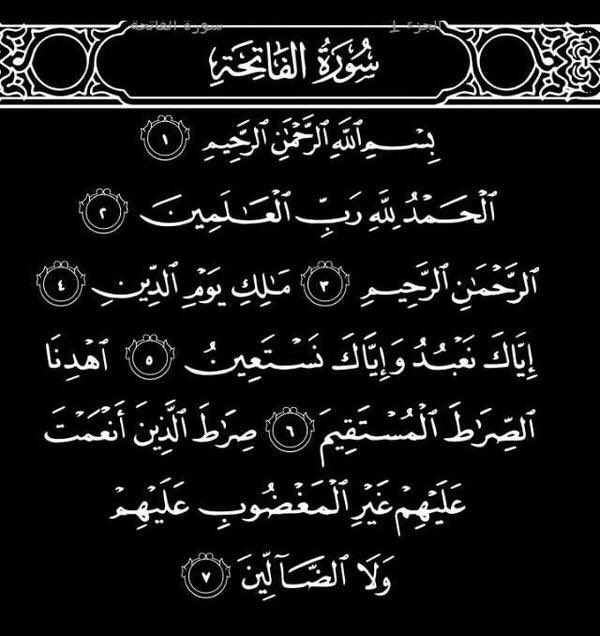 الجزء 1 سورة الفاتحة
سُورَةُ الفَاتِحَةِ
بِسْمِ ٱللَّهِ ٱلرَّحْمَٰنِ ٱلرَّحِيمِ ١
ٱلْحَمْدُ لِلَّهِ رَبِّ ٱلْعَٰلَمِينَ ٢
ٱلرَّحْمَٰنِ ٱلرَّحِيمِ ٣ مَٰلِكِ يَوْمِ ٱلدِّينِ ٤
إِيَّاكَ نَعْبُدُ وَإِيَّاكَ نَسْتَعِينُ ٥ ٱهْدِنَا
ٱلصِّرَٰطَ ٱلْمُسْتَقِيمَ ٦ صِرَٰطَ ٱلَّذِينَ أَنْعَمْتَ
عَلَيْهِمْ غَيْرِ ٱلْمَغْضُوبِ عَلَيْهِمْ
وَلَا ٱلضَّآلِّينَ ٧